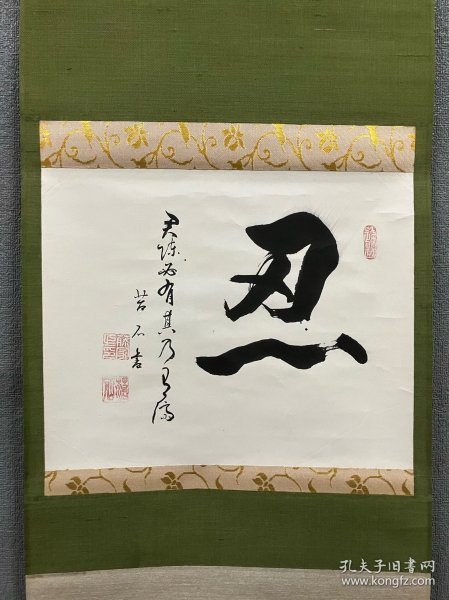 忍
君陳必有其乃有濟
石書
孔夫子旧书网
www.kongfz.com